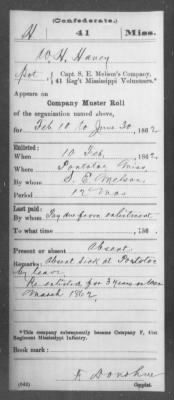 (Confederate.)
H 41 Miss.
W. H. Haney
Pvt., Capt. S. E. Melson's Company,
41 Reg't Mississippi Volunteers.*
Appears on
Company Muster Roll
of the organization named above,
for Feb 10 to June 30, 1862.
Enlisted:
When 10 Feb, 1862.
Where Pontotoc Miss.
By whom S. E. Melson
Period 12 Mos
Last paid:
By whom Pay due from enlistment
To what time , 186 .
Present or absent Absent
Remarks: Absent sick at Pontotoc
by leave
Re enlisted for 3 years or
March 1862.
*This company subsequently became Company F, 41st
Regiment Mississippi Infantry.
Book mark:
(642) Donohue
Copyist.